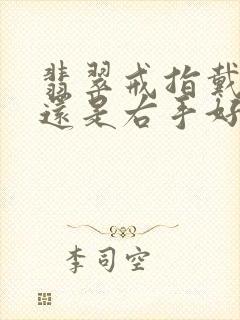 翡翠戒指戴
還是右手好
李司空